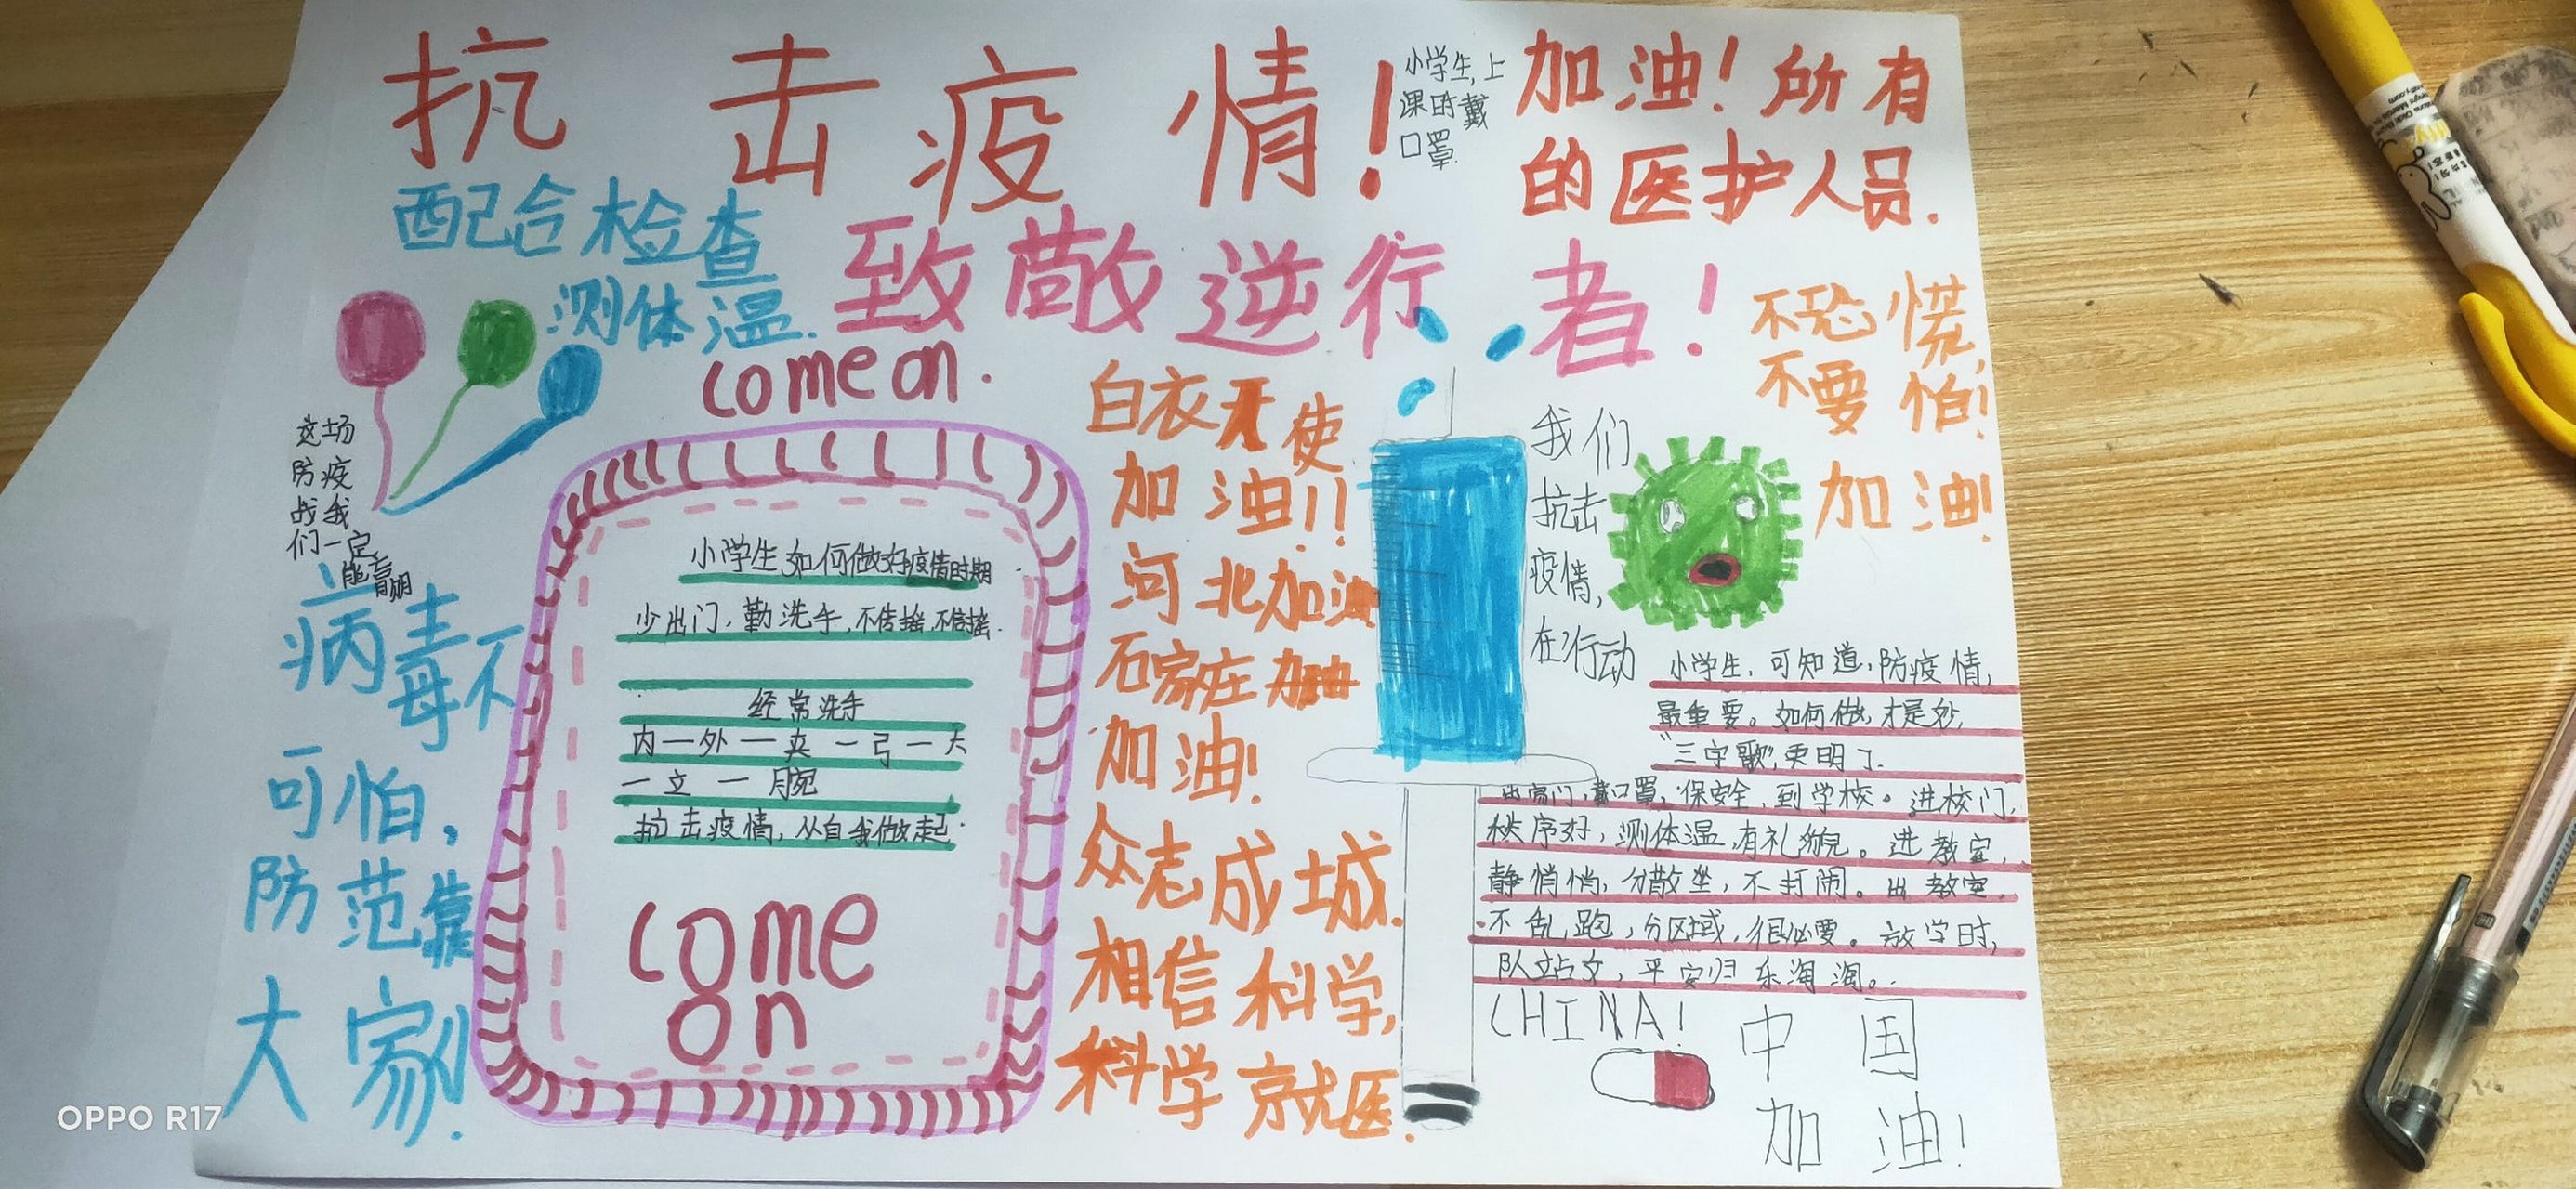 抗击疫情!
小学生,上
课时戴
口罩.
加油!所有
的医护人员.
配合检查
测体温.
致敬逆行者!
come on.
不恐慌,
不要怕!
加油!
这场
防疫
战我
们一定
能赢
病毒不
可怕,
防范靠
大家!
小学生如何做好疫情时期
少出门,勤洗手,不传谣,不信谣.
经常洗手
内一外一夹一弓一大
一立一腕
抗击疫情,从自我做起.
come
on
白衣天使
加油!!
河北加油
石家庄
加油!
众志成城.
相信科学,
科学就医.
我们
抗击
疫情,
在行动
小学生,可知道,防疫情,
最重要。如何做,才是妙,
"三字歌",更明了.
出家门,戴口罩,保安全,到学校。进校门,
秩序好,测体温,有礼貌。进教室,
静悄悄,分散坐,不打闹。出教室,
不乱跑,分区域,很必要。放学时,
队站文,平安归乐淘淘。
CHINA!
中国
加油!
OPPO R17